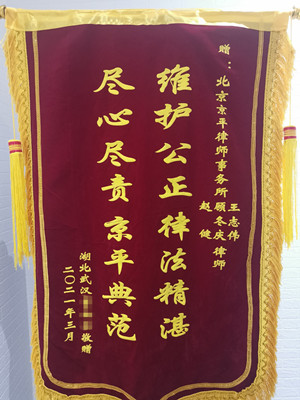 赠：北京京平律师事务所
王志伟
顾冬庆
赵健
律师
维护公正律法精湛
尽心尽责京平典范
湖北武汉
敬赠
二〇二一年三月